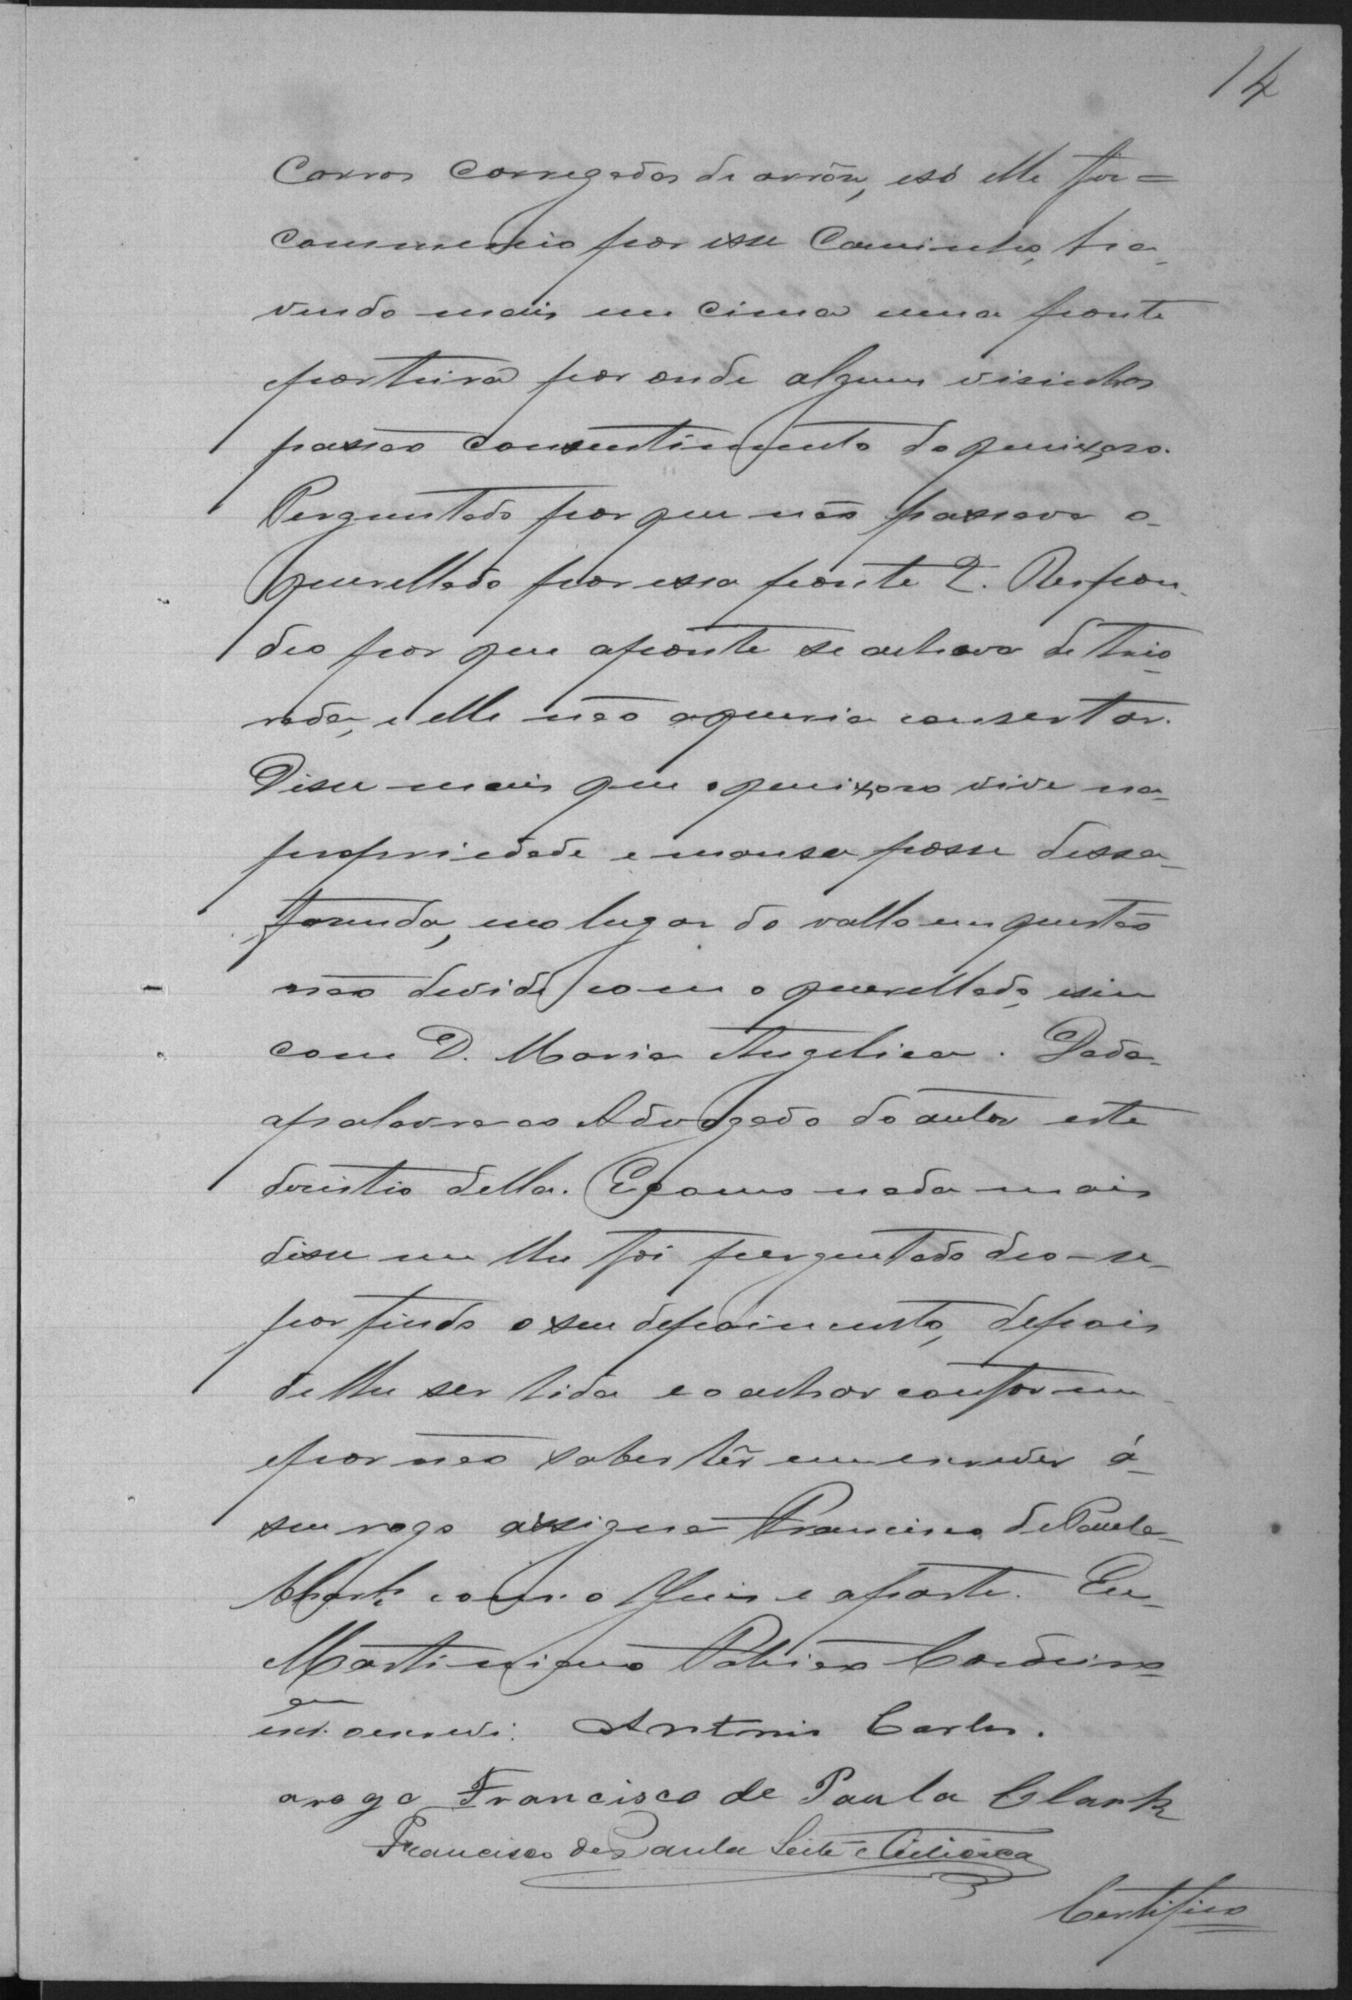 14
Carros carregados de arrôz, e só elle foi =
commercio por esse Caminho, ha-
vendo mais em cima uma ponte
e porteira por onde alguns visinhos
passão consentimento do queixoso.
Perguntado por que não passava o-
querellado por essa ponte?. Respon-
deo por que a ponte se achava deterio-
rada, e elle não a queria consertar.
Disse mais que o queixoso vive na-
propriedade e mansa posse dessa-
fazenda, e no lugar do vallo em questão
não devide com o querellado, e sim
com D. Maria Angelica. Dada-
a palavra ao Advogado do autor este
desistio della. E como nada mais
disse nem lhe foi perguntado deo-se-
por findo o seu depoimento, depois
de lhe ser lida e o achar conforme
e por não saber lêr nem escrever á-
seu rogo assigna Francisco de Paula-
Clark com o Juis e a parte. Eu-
Martiniano Cordeiro
escr. o escrevi. Antonio Carlos.
a rogo Francisco de Paula Clark
Francisco de Paula Leite e
Certifico